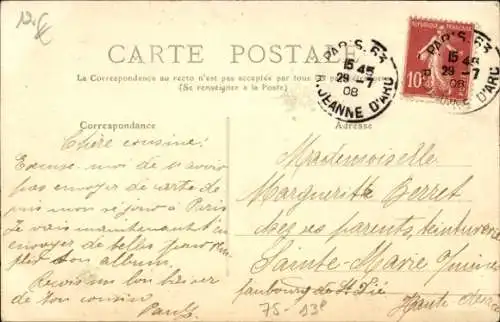 12.
CARTE POSTALE
La Correspondance au recto n'est pas acceptée par tous les pays
(Se renseigner à la Poste)
PARIS. 63
15 45
29 - 7
08
R. JEANNE D'ARC
10
PARIS. 63
15 45
29 - 7
08
R. JEANNE D'ARC
Correspondance
Adresse
Chère cousine!
Excuse moi de t'avoir
pas envoyer de carte de
puis mon séjour à Paris
Je vais maintenant t'en
envoyer de belles pour rem
plir ton album.
Reçois un bon baiser
de ton cousin
Paul
Mademoiselle
Marguerite Perret
chez ses parents, teinturerie
Sainte-Marie
faubourg de St Dié
Haute
75-13e